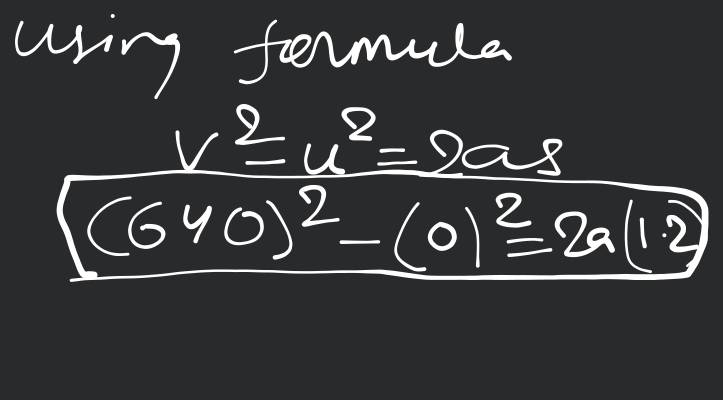 Using formula
v² = u² = 2as
(640)² – (0)² = 2a(1.2)